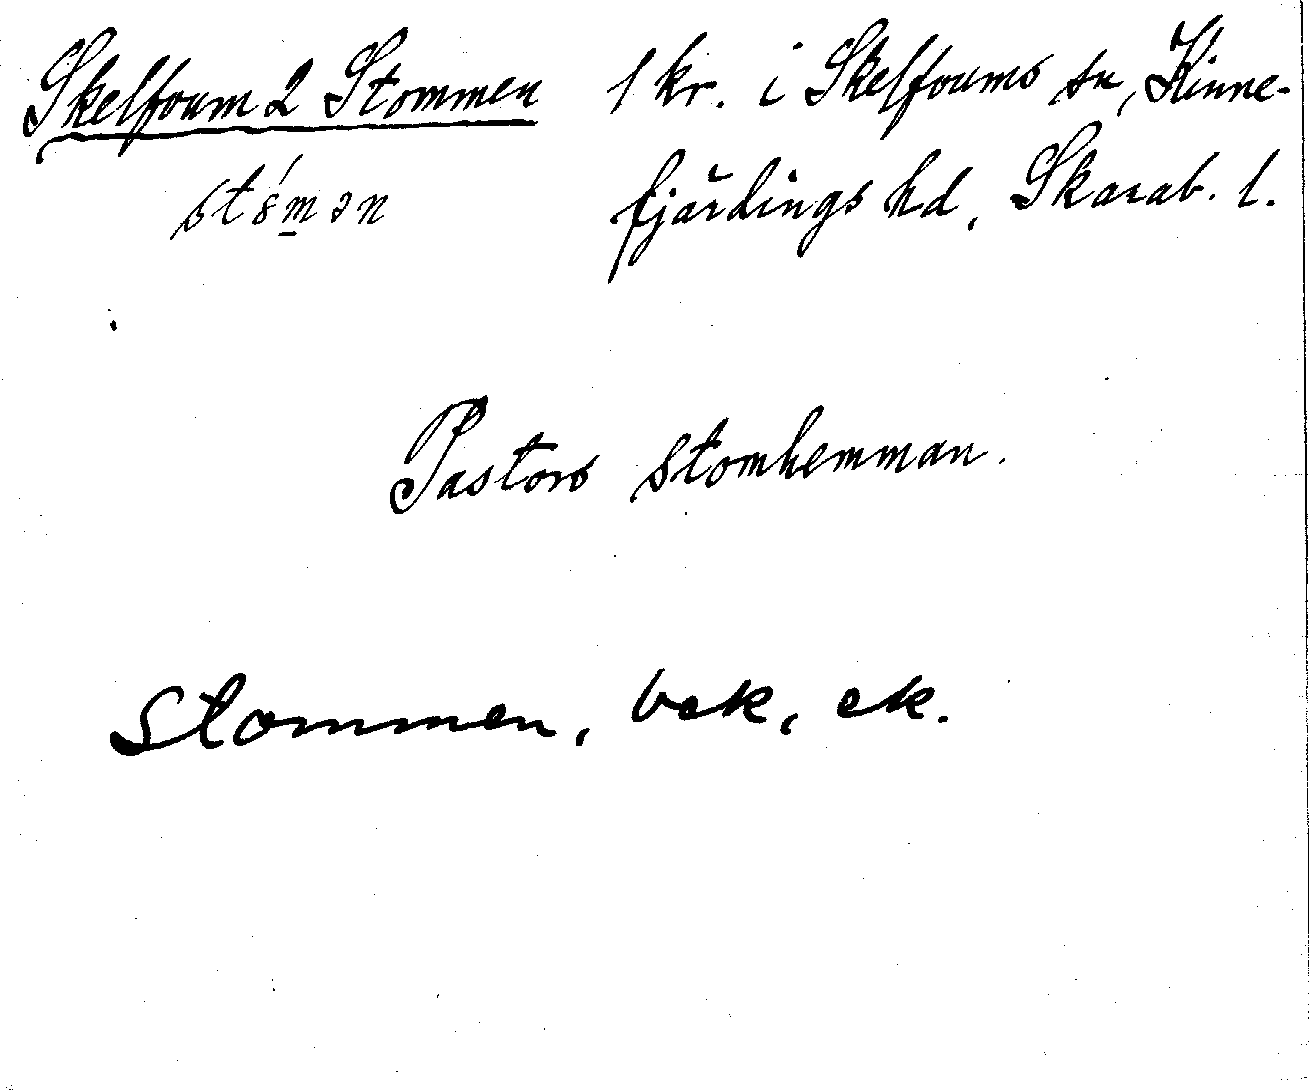 Skelfvum 2 Stommen 1 kr. i Skelfvums sn, Kinne-
fjärdings hd, Skarab. l.
Pastors stomhemman.
Stommen, bek, ek.